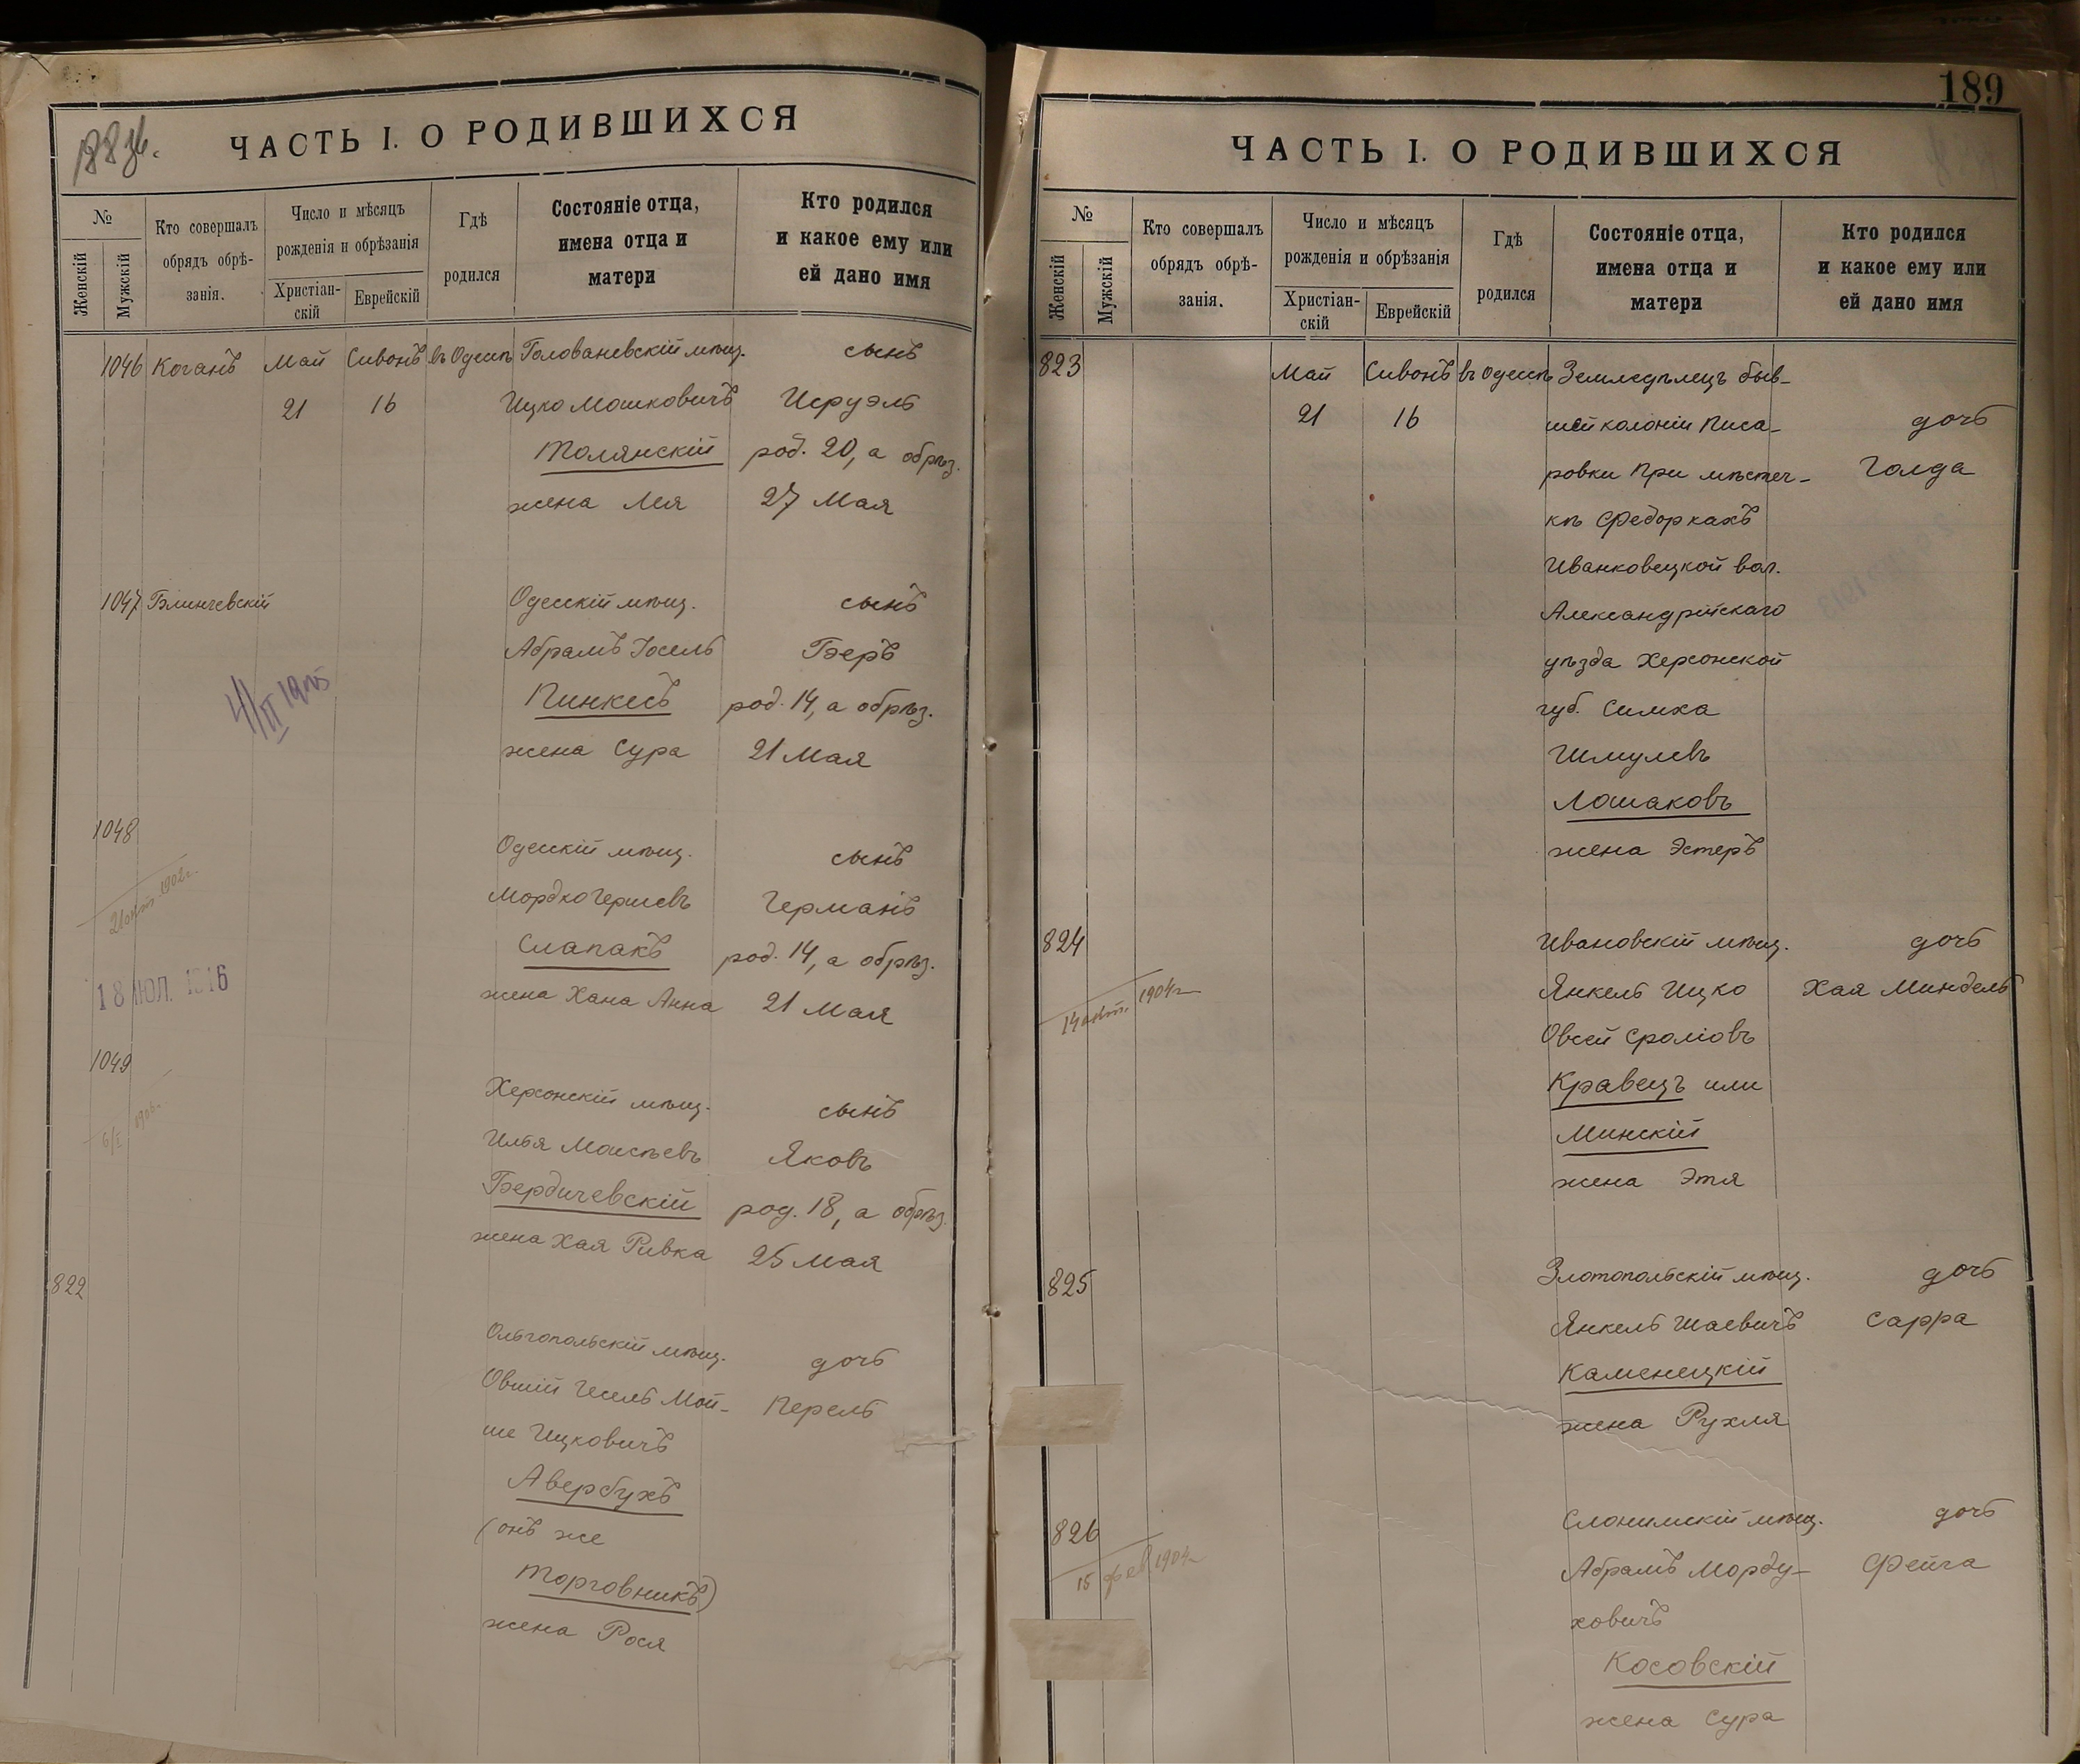 188 зб.
ЧАСТЬ I. О РОДИВШИХСЯ
№
Женскій
Мужскій
Кто совершалъ
обрядъ обрѣ-
занія.
Число и мѣсяцъ
рожденія и обрѣзанія
Христіан-
скій
Еврейскій
Гдѣ
родился
Состояніе отца,
имена отца и
матери
Кто родился
и какое ему или
ей дано имя
1046 Коганъ Май Сивонъ въ Одессѣ Голованевскій мѣщ. сынъ
21 16 Ицко Мошковичъ Исруэль
Толянскій род. 20, а обрѣз.
жена Лея 27 Мая
1047 Блинчевскій Одесскій мѣщ. сынъ
Абрамъ Іосель Бэеръ
Пинкесъ род. 14, а обрѣз.
жена Сура 21 Мая
4/II 1905
1048 Одесскій мѣщ. сынъ
Мордко Гершевъ Германъ
Слапакъ род. 14, а обрѣз.
жена Хана Анна 21 Мая
1902 г.
18 ИЮЛ. 1916
1049 Херсонскій мѣщ. сынъ
Илья Моисѣевъ Яковъ
Бердичевскій род. 18, а обрѣз.
жена Хая Ривка 25 Мая
822 Ольгопольскій мѣщ. дочь
Овшій Іесель Мой- Перель
ше Ицковичъ
Авербухъ
(онъ же
Торговникъ)
жена Рося
189
ЧАСТЬ I. О РОДИВШИХСЯ
№
Женскій
Мужскій
Кто совершалъ
обрядъ обрѣ-
занія.
Число и мѣсяцъ
рожденія и обрѣзанія
Христіан-
скій
Еврейскій
Гдѣ
родился
Состояніе отца,
имена отца и
матери
Кто родился
и какое ему или
ей дано имя
823 Май Сивонъ въ Одессѣ Земледѣлецъ быв-
21 16 шей колоніи Писа- дочь
ровки при мѣстеч- Голда
кѣ Федоркахъ
Иванковецкой вол.
Александрійскаго
уѣзда Херсонской
губ. Симха
Шмулевъ
Лошаковъ
жена Эстеръ
824 Ивановскій мѣщ. дочь
Янкель Ицко Хая Миндель
Овсей Сроліовъ
Кравецъ или
Минскій
жена Этя
14 1904 г.
825 Златопольскій мѣщ. дочь
Янкель Шаевичъ Сарра
Каменецкій
жена Рухля
826 Слонимскій мѣщ. дочь
Абрамъ Морду- Фейга
ховичъ
Косовскій
жена Сура
15 фев. 1904 г.